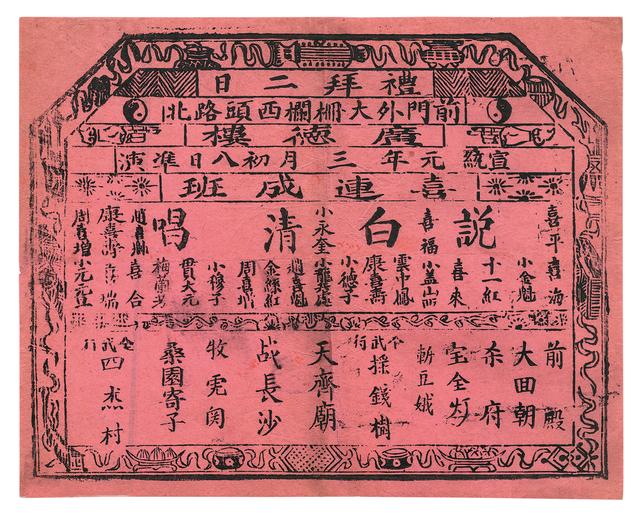 禮拜二日
前門外大柵欄西頭路北
廣德樓
宣統元年三月初八日准演
喜連成班
說白清唱
喜平喜海
小金魁
十一紅
喜來
喜福
雲中鳳
康喜壽
小德子
小永奎
趙喜魁
金絲紅
周喜增
小穆子
貫大元
梅蘭芳
趙喜魁喜合
康喜壽喜瑞
周喜增小元元紅
前殿
大回朝
杀府
宝全灯
斬豆娥
全武行採錢樹
天齊廟
战長沙
牧虎関
桑園寄子
全武行四杰村